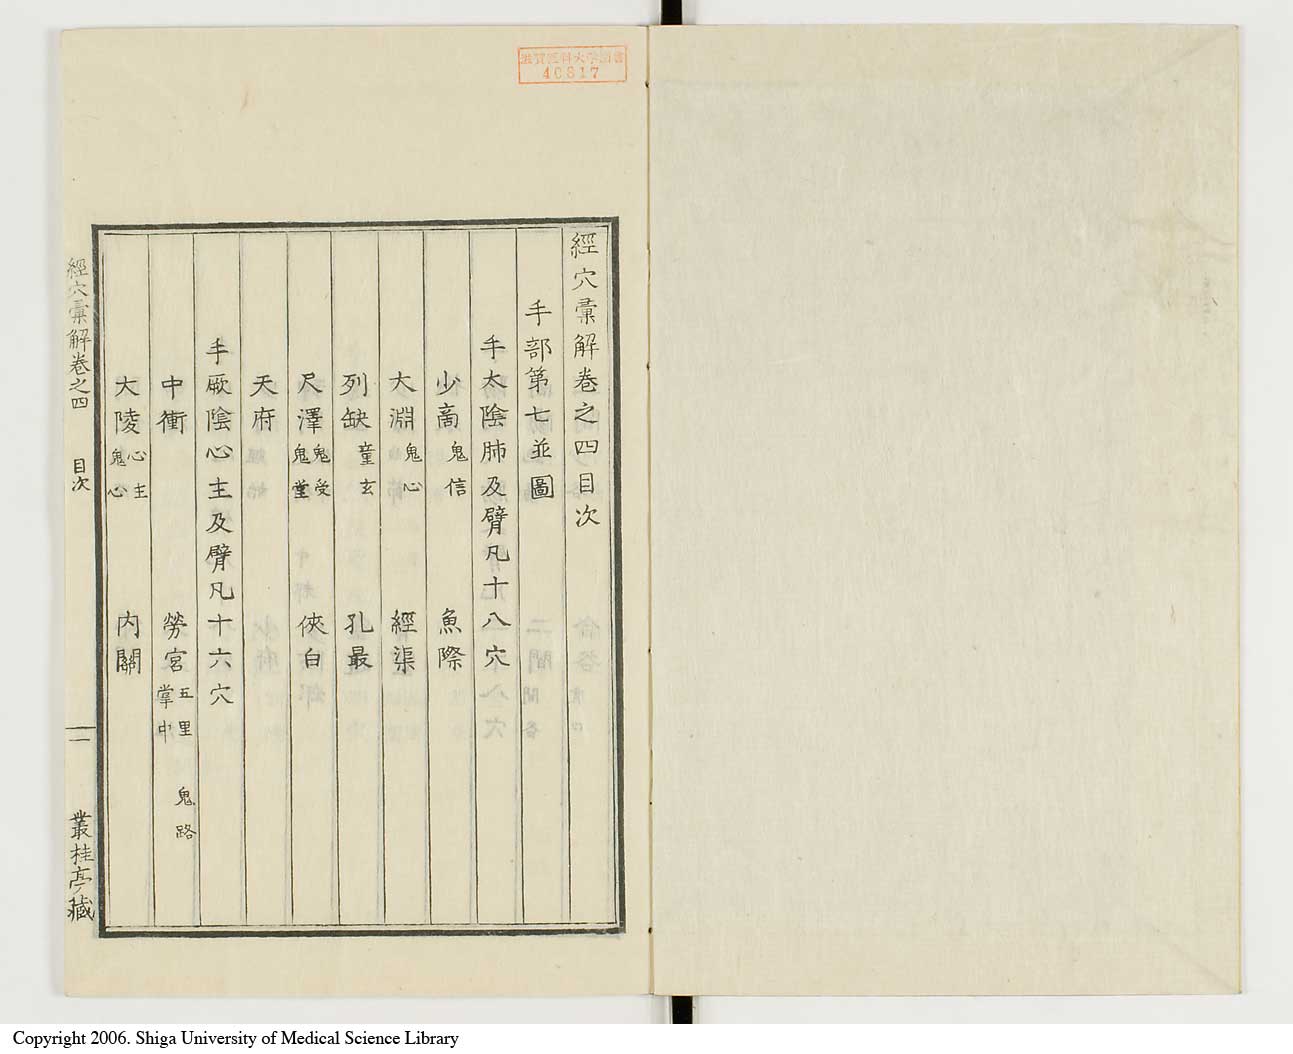 滋賀医科大学図書
40817
經穴彙解卷之四目次
手部第七並圖
手太陰肺及臂凡十八穴
少商 鬼信 魚際
大淵 鬼心 經渠
列缺 童玄 孔最
尺澤 鬼受 鬼堂 俠白
天府
手厥陰心主及臂凡十六穴
中衝 勞宮 五里 鬼路 掌中
大陵 心主 鬼心 內關
經穴彙解卷之四 目次 一 叢桂亭藏
Copyright 2006. Shiga University of Medical Science Library